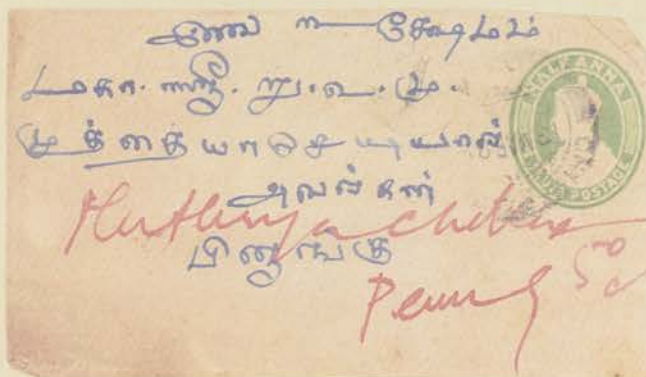 க்ஷேமம்
மகா. ஸ்ரீ. ரு. வ. மு.
முத்தையா செட்டியார்
அவர்கள்
Muthuya Chettiar
பினாங்கு
Penang
HALF ANNA
INDIA POSTAGE